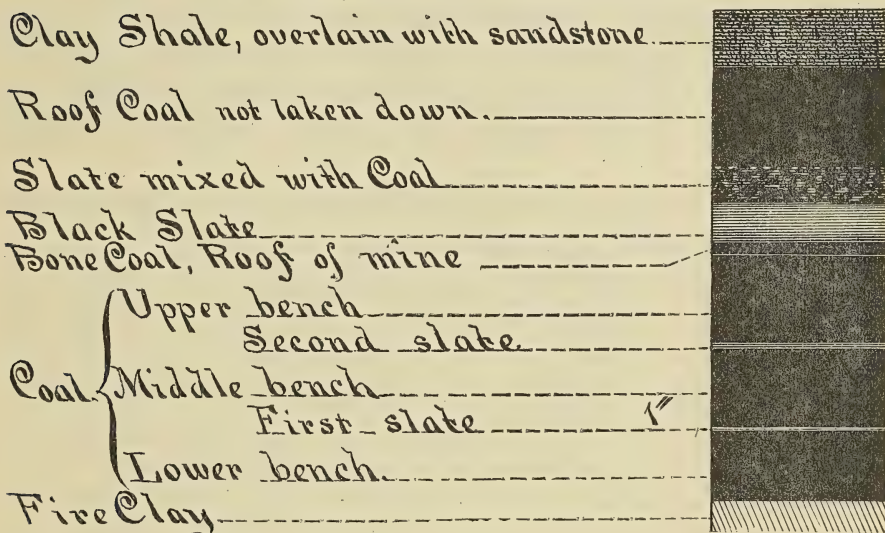 Clay Shale, overlain with sandstone.
Roof Coal not taken down.
Slate mixed with Coal
Black Slate
Bone Coal, Roof of mine
Upper bench
Second slate
Coal. Middle bench
First slate 1"
Lower bench.
Fire Clay